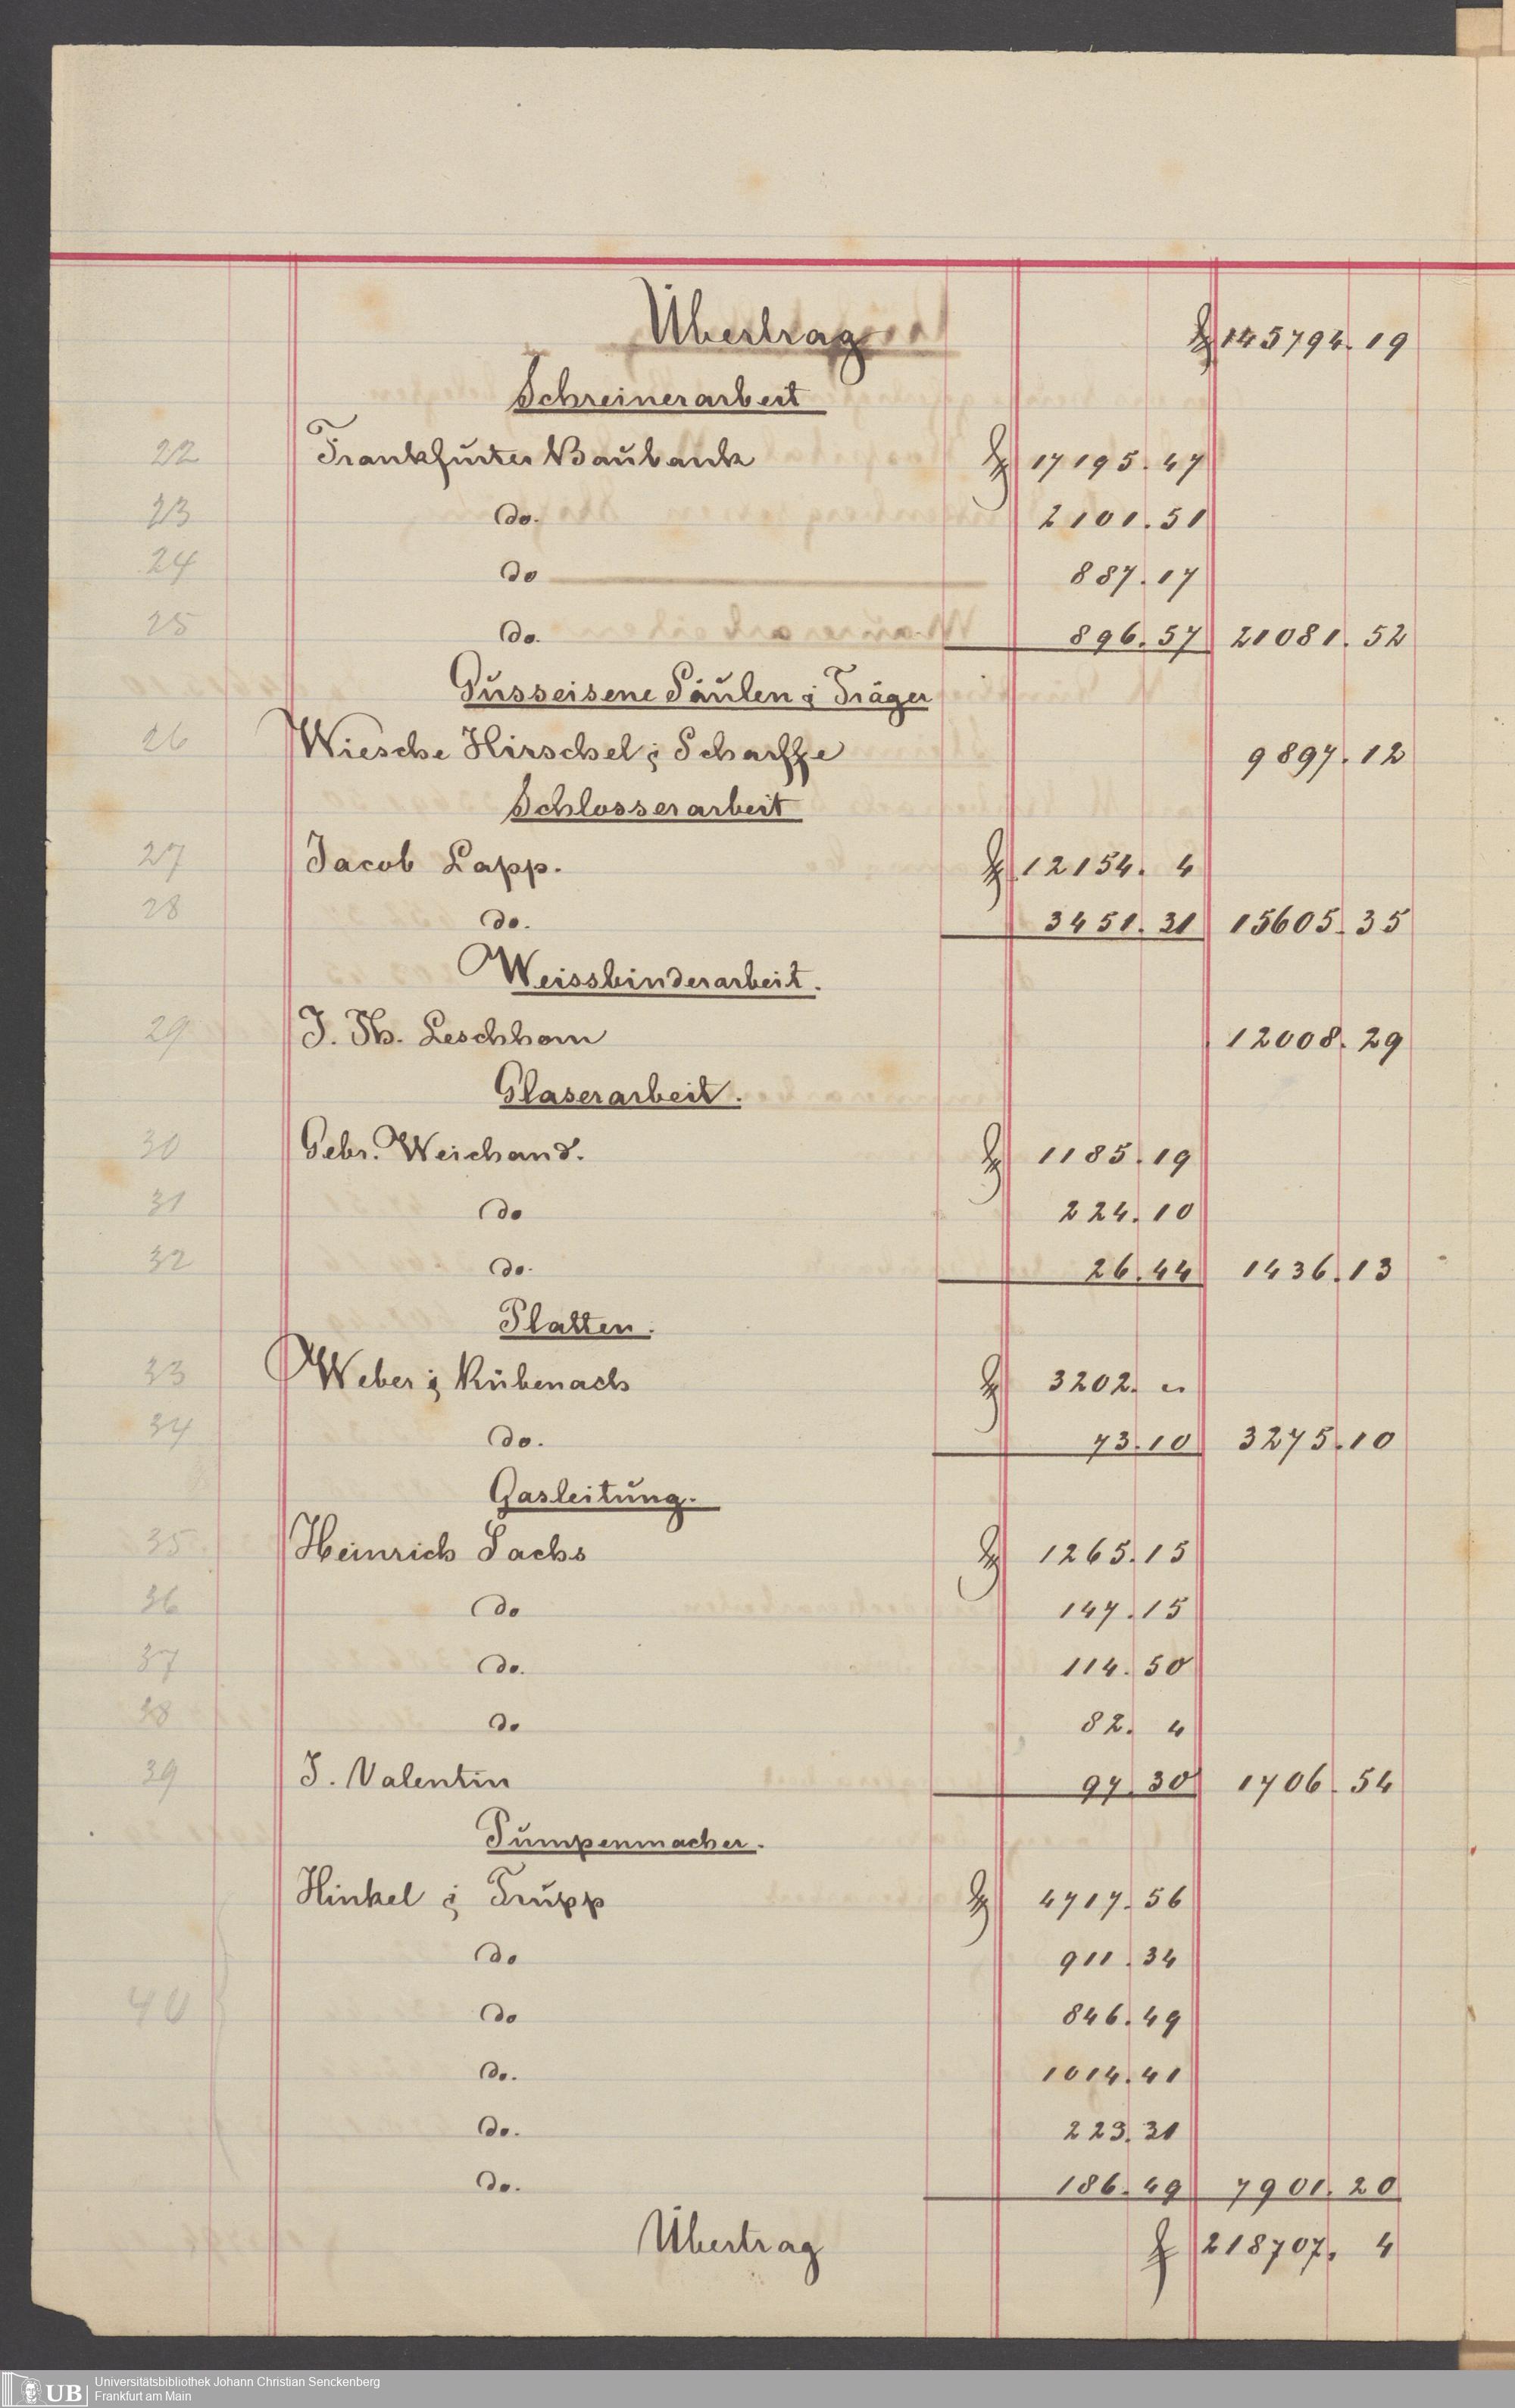 Übertrag f 145794. 19
Schreinerarbeit
22 Frankfurter Baubank f 17195. 47
23 do. 2101. 51
24 do 887. 17
25 do. 896. 57 21081. 52
Gusseisene Säulen & Träger
26 Wiesche Hirschel & Scharffe 9897. 12
Schlosserarbeit
27 Jacob Lapp. f 12154. 4
28 do. 3451. 31 15605. 35
Weissbinderarbeit.
29 J. Ph. Leschhorn 12008. 29
Glaserarbeit.
30 Gebr. Weichand. f 1185. 19
31 do 224. 10
32 do. 26. 44 1436. 13
Platten.
33 Weber & Rübenach f 3202. "
34 do. 73. 10 3275. 10
Gasleitung.
35 Heinrich Sachs f 1265. 15
36 do 147. 15
37 do. 114. 50
38 do 82. 4
39 J. Valentin 97. 30 1706. 54
Pumpenmacher.
Hinkel & Trupp f 4717. 56
do 911. 34
40 do 846. 49
do. 1014. 41
do. 223. 31
do. 186. 49 7901. 20
Übertrag f 218707. 4
UB Universitätsbibliothek Johann Christian Senckenberg
Frankfurt am Main